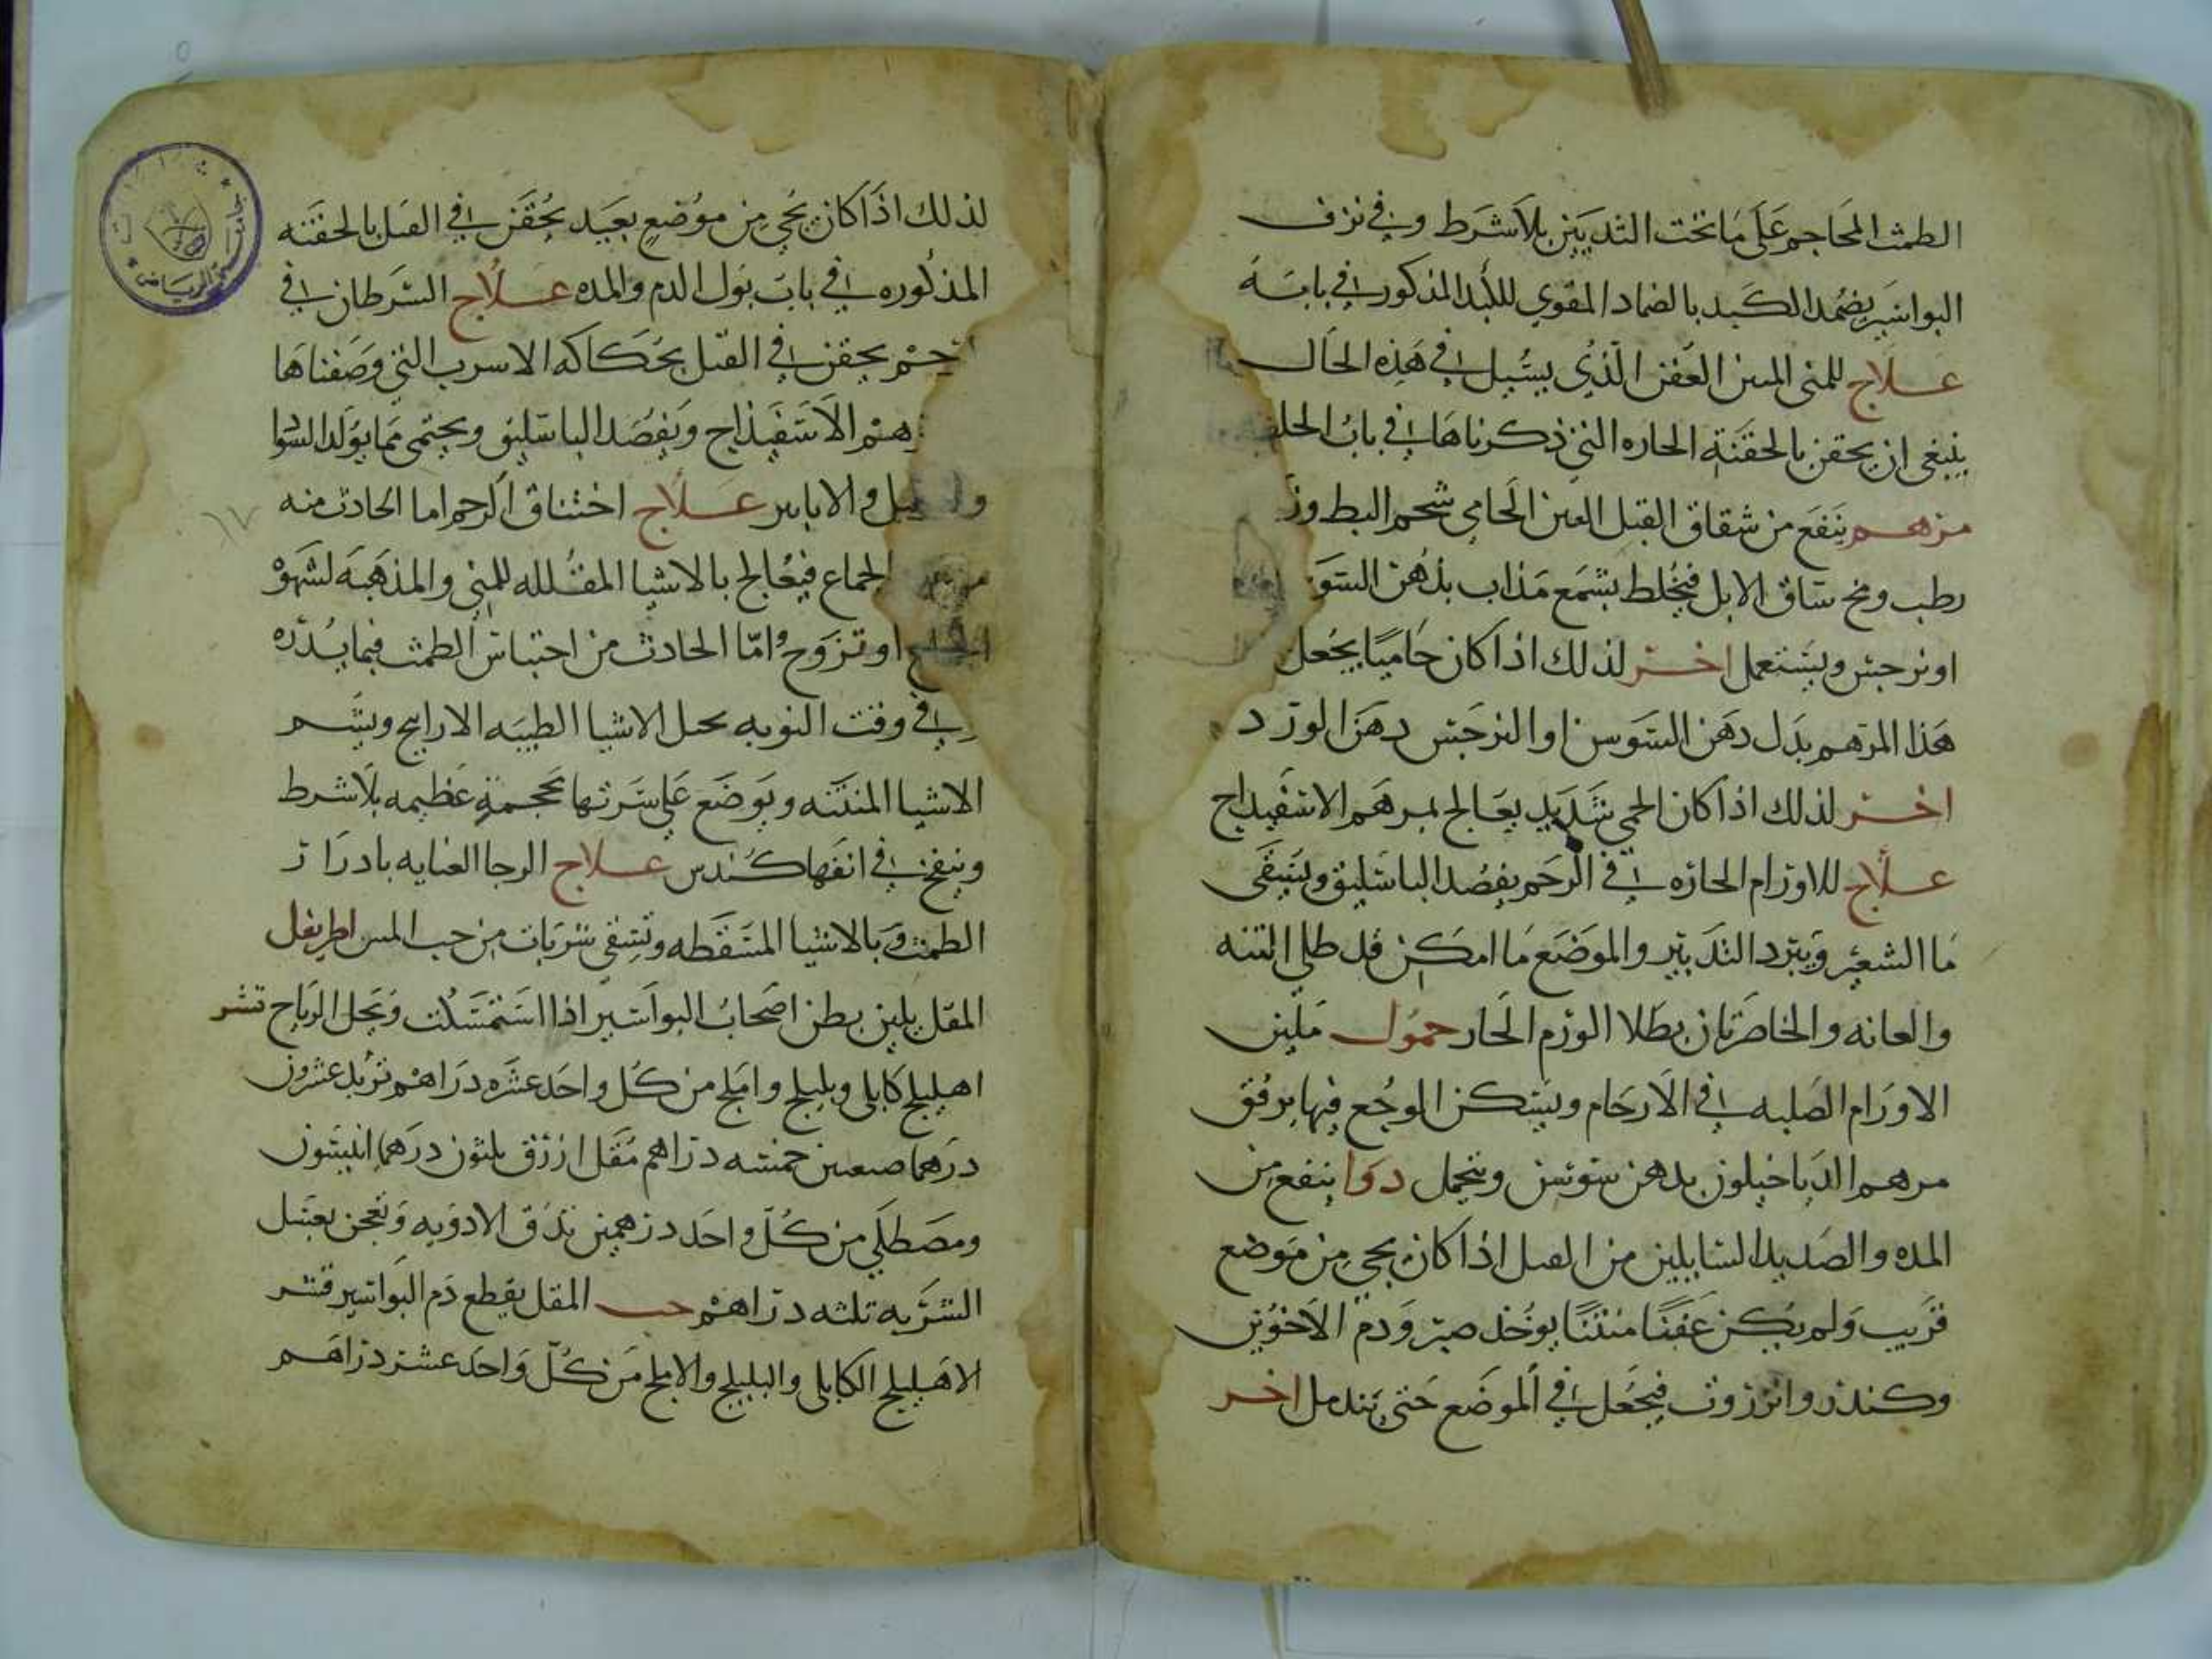 الطمث المحاجم على ما تحت الثديين بلا شرط وفي نزف
البواسير يضمد الكبد بالضماد المقوي للكبد المذكور في بابه
علاج للمنى المسن العفن الذي يسيل في هذه الحال
ينبغي ان يحقن بالحقنة الحاره التي ذكرناها في باب
مرهم ينفع من شقاق القبل الغير الحامي شحم البط وز
رطب ومخ ساق الابل فيخلط بشمع مذاب بدهن السو
او نرجس ويستعمل اخر لذلك اذا كان حاميا يجعل
هذا المرهم بدل دهن السوسن او النرجس دهن الورد
اخر لذلك اذا كان الحمى شديد يعالج بمرهم الاسفيداج
علاج للاورام الحاره في الرحم يفصد الباسليق ويسقى
ما الشعير ويبرد التدبير والموضع ما امكن قد طلي
والعانه والخاصرتان بطلا الورم الحار حمول ملين
الاورام الصلبه في الارحام ويسكن الوجع فيها برفق
مرهم الدياخيلون بدهن سوسن ويتحمل دوا ينفع من
المده والصديد السايلين من القبل اذا كان يجي من موضع
قريب ولم يكن عفنا منتنا يوخذ صبر ودم الاخوين
وكندر وانزروت فيجعل في الموضع حتى يندمل اخر
لذلك اذا كان يجي من موضع بعيد يحقن في القبل بالحقنه
المذكوره في باب بول الدم والمده علاج السرطان في
يحقن في القبل بحكاكه الاسرب التي وصفناها
هم الاسفيذاج ويفصد الباسليق ويحتمى مما يولد السودا
والابازير علاج اختناق الرحم اما الحادث منه
الجماع فيعالج بالاشيا المقلله للمني والمذهبه لشهوة
او تزوج واما الحادث من احتباس الطمث فبما يدره
في وقت النوبه بحمل الاشيا الطيبه الارايح ويشم
الاشيا المنتنه ويوضع على سرتها محجمة عظيمه بلا شرط
وينفخ في انفها كندس علاج الرجا العنايه بادرار
الطمث وبالاشيا المسقطه وتسقى شربات من حب المس اطريفل
المقل يلين بطن اصحاب البواسير اذا استمسكت ويحل الرياح تشر
اهليلج كابلي وبليلج واملج من كل واحد عشره دراهم تربد عشرون
درهما خمسه دراهم مقل ازرق ثلثون درهما انيسون
ومصطكي من كل واحد درهمين تدق الادويه وتعجن بعسل
الشربه ثلثه دراهم حب المقل يقطع دم البواسير قشر
الاهليلج الكابلي والبليلج والاملج من كل واحد عشر دراهم